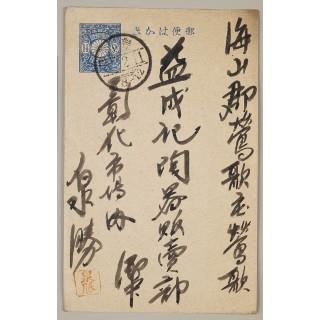 郵便はかき
海山郡鶯歌庄鶯歌
益成記陶器販賣部
彰化市場內
泉勝